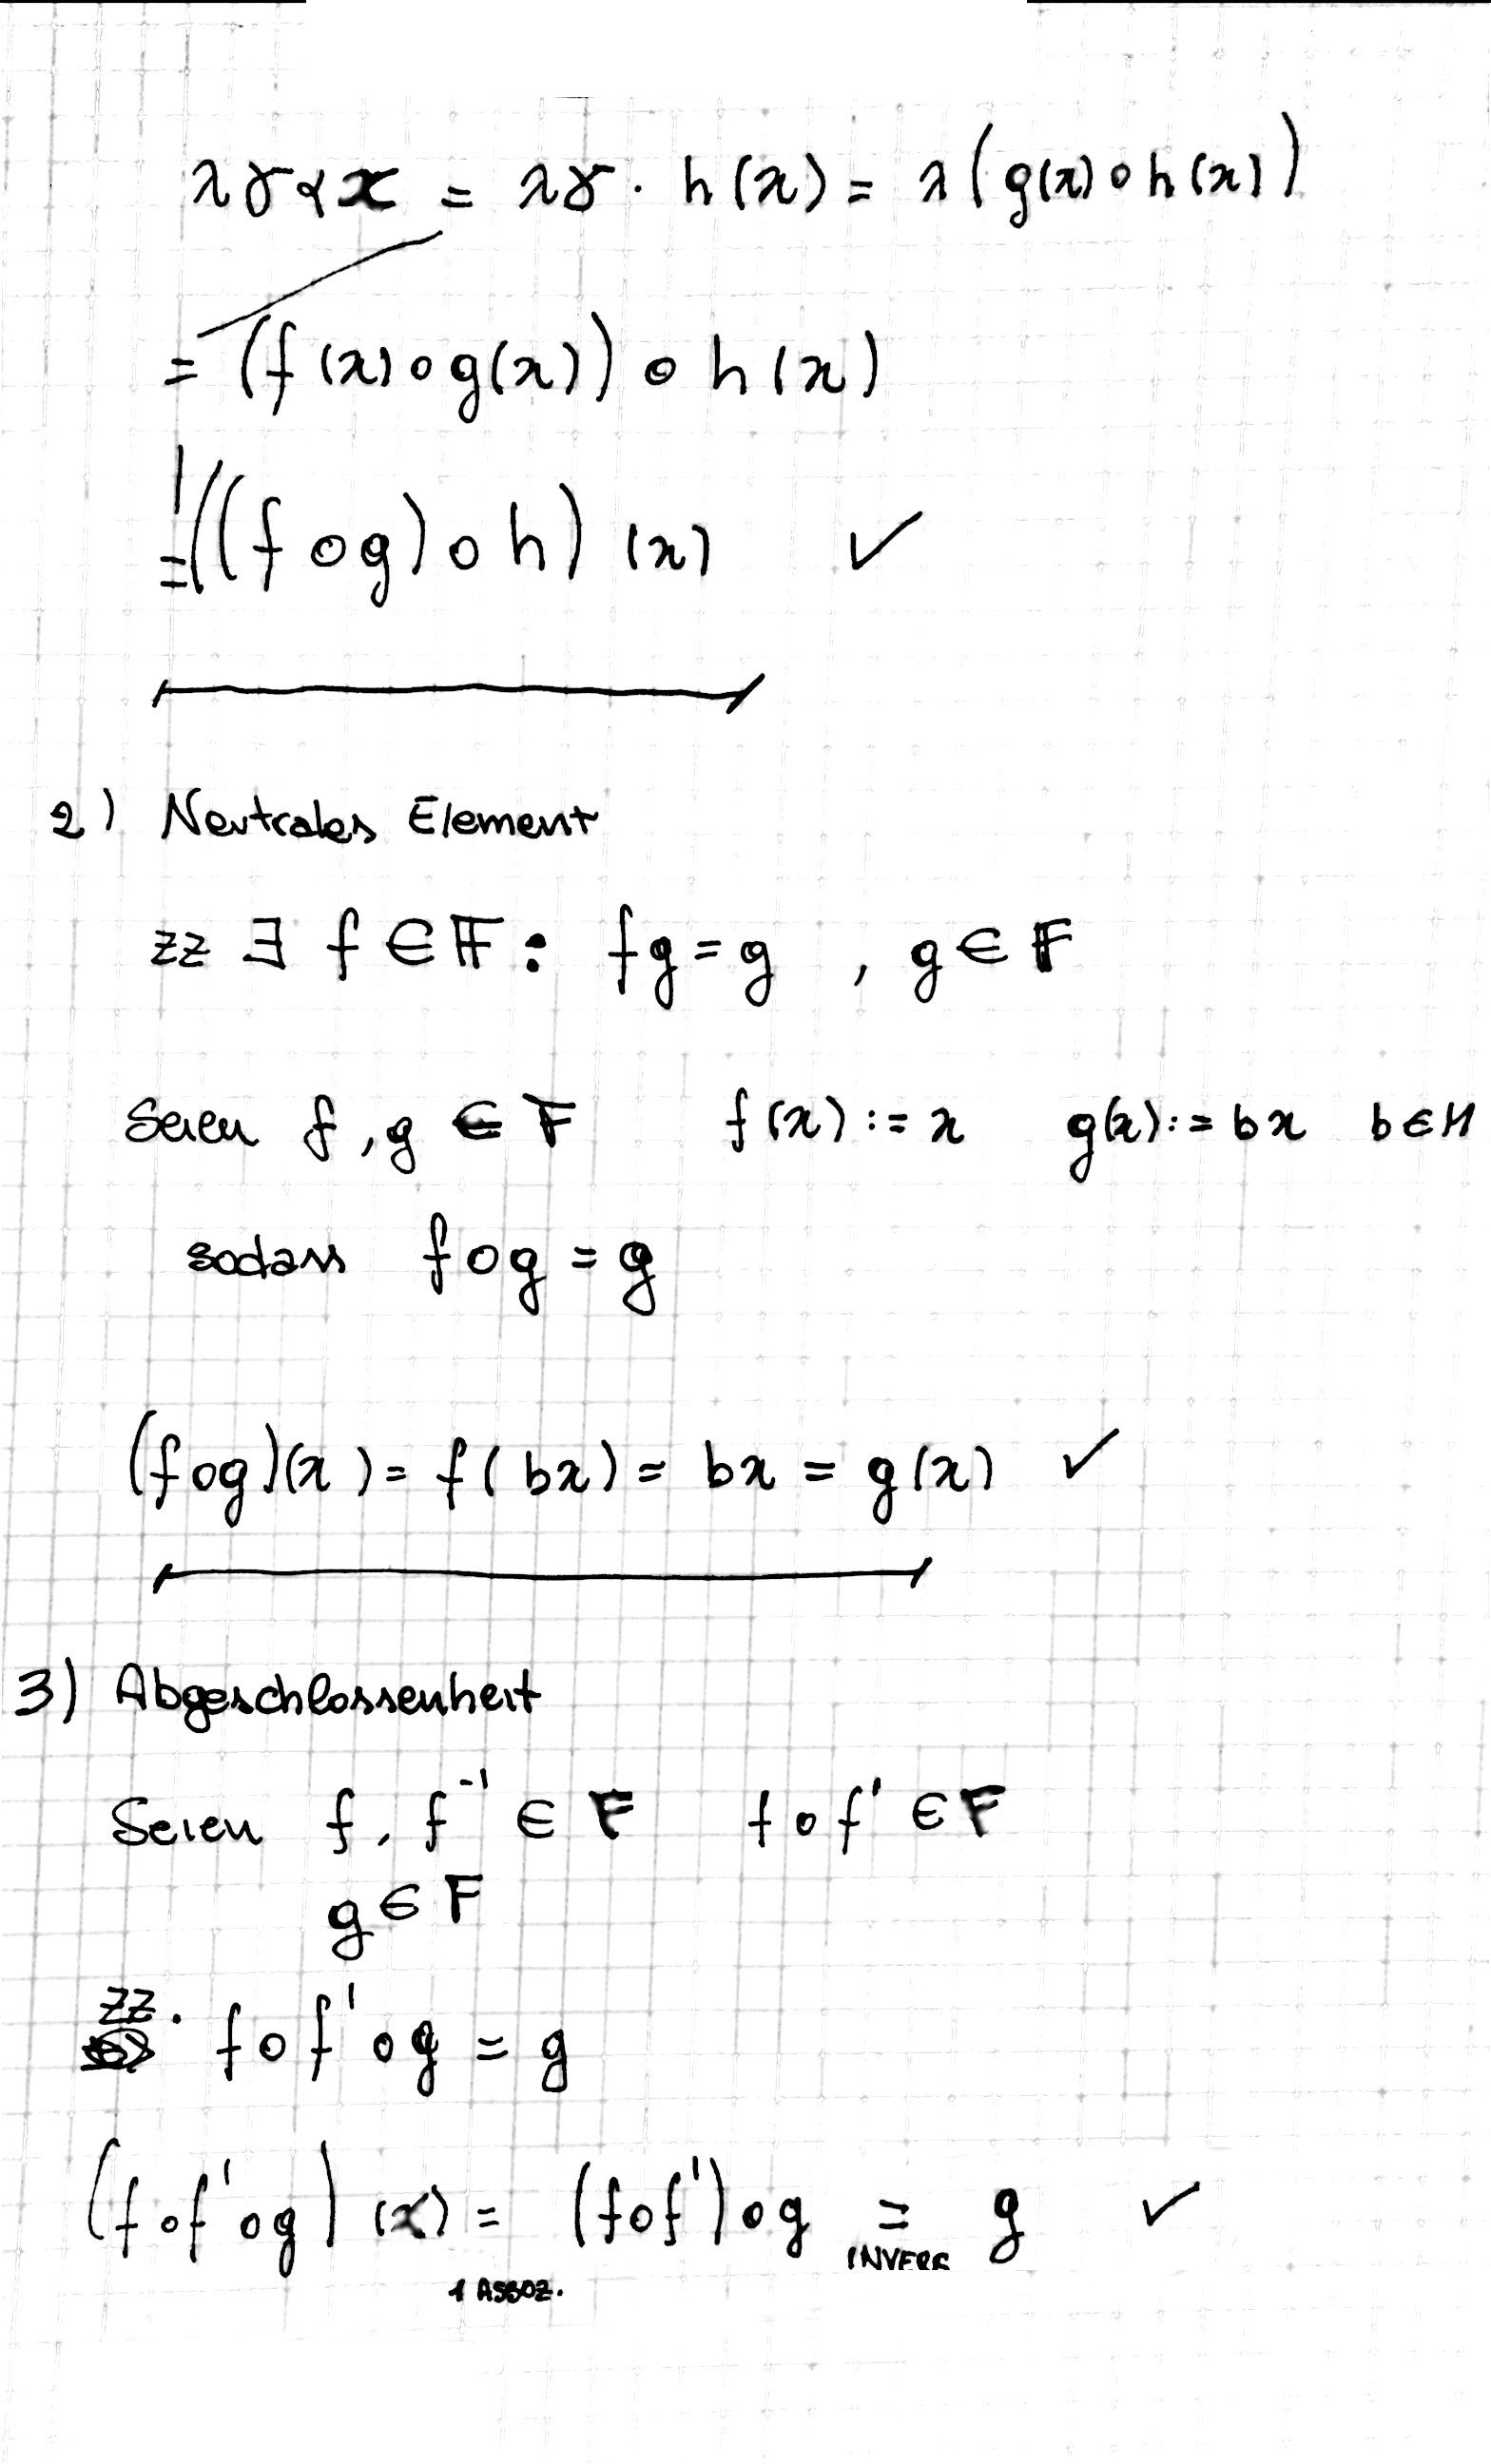 λγαx = λγ · h(x) = λ(g(x)∘h(x))
= (f(x)∘g(x))∘h(x)
=! ((f∘g)∘h)(x) ✓
2) Neutrales Element
zz ∃ f ∈ F : fg = g , g ∈ F
Seien f, g ∈ F f(x) := x g(x) := bx b ∈ M
sodass f∘g = g
(f∘g)(x) = f(bx) = bx = g(x) ✓
3) Abgeschlossenheit
Seien f, f⁻¹ ∈ F f∘f' ∈ F
g ∈ F
zz. f∘f'∘g = g
(f∘f'∘g)(x) = (f∘f')∘g = g ✓
1 ASSOZ. INVERS